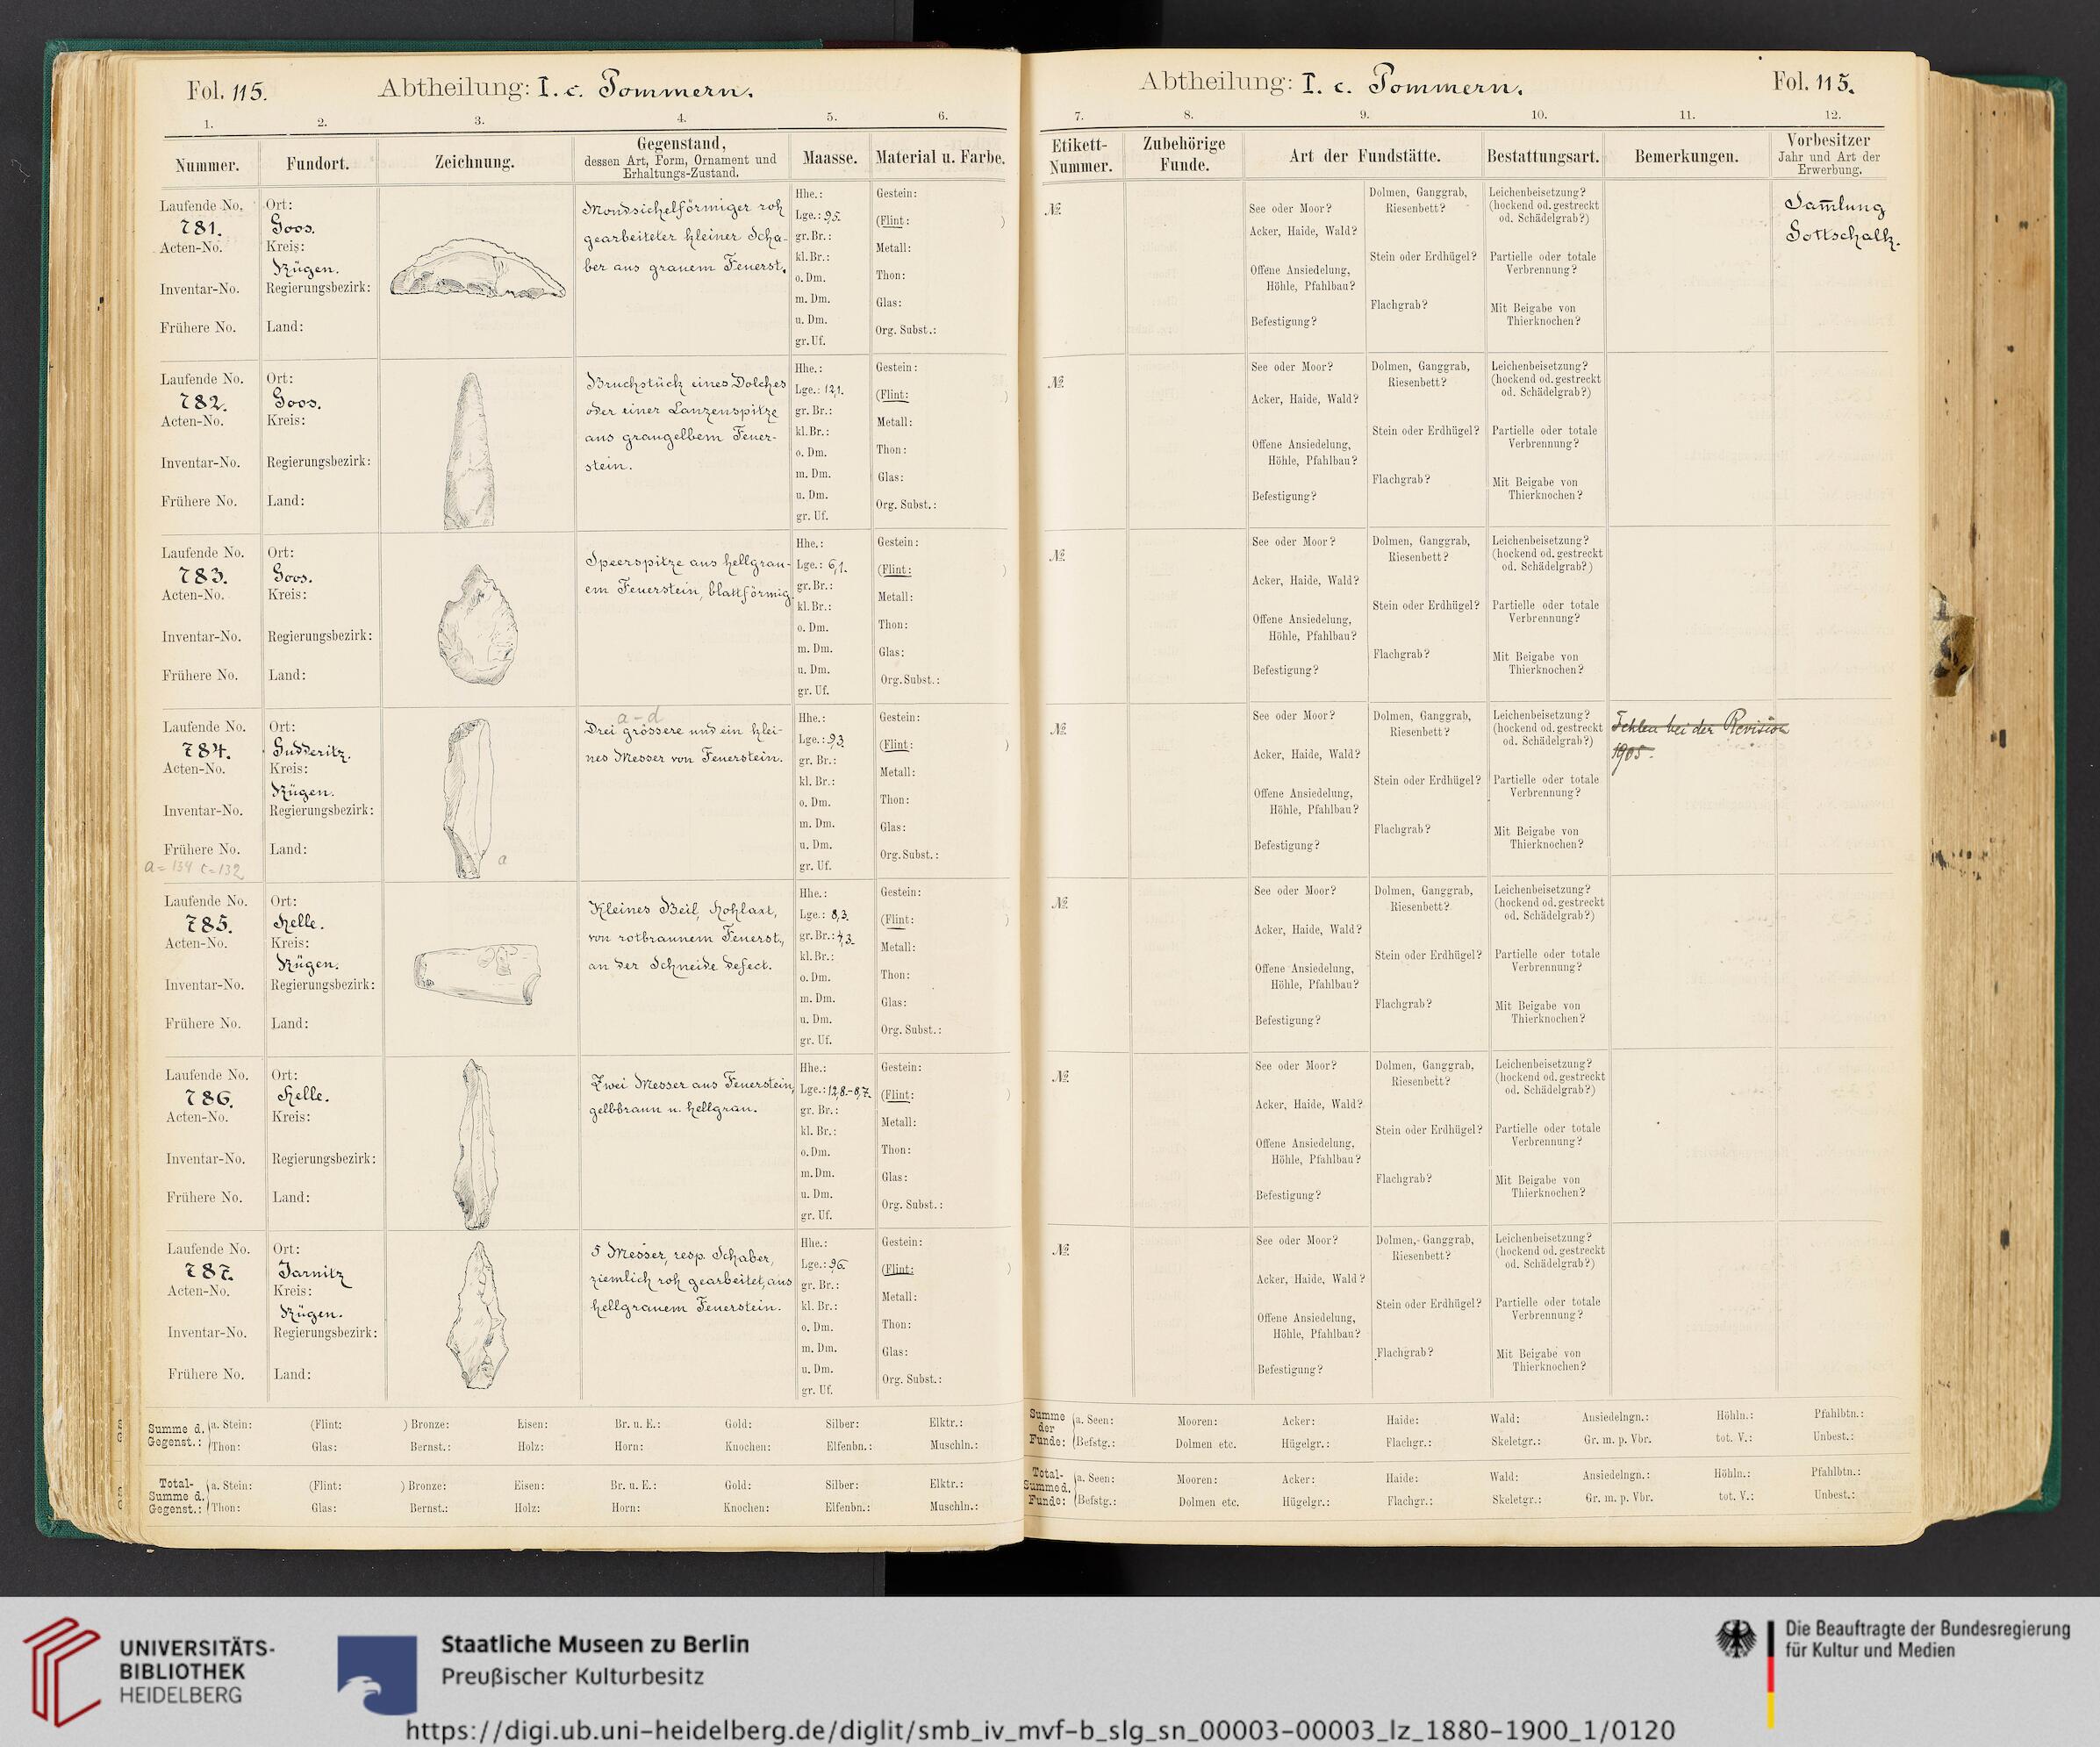 Fol. 115.
Abtheilung: I. c. Pommern.
1. 2. 3. 4. 5. 6.
Nummer.
Fundort.
Zeichnung.
Gegenstand,
dessen Art, Form, Ornament und
Erhaltungs-Zustand.
Maasse.
Material u. Farbe.
Laufende No.
781.
Acten-No.
Inventar-No.
Frühere No.
Ort:
Goos.
Kreis:
Rügen.
Regierungsbezirk:
Land:
Mondsichelförmiger roh
gearbeiteter kleiner Scha-
ber aus grauem Feuerst.
Hhe.:
Lge.: 9,5.
gr. Br.:
kl. Br.:
o. Dm.
m. Dm.
u. Dm.
gr. Uf.
Gestein:
(Flint: )
Metall:
Thon:
Glas:
Org. Subst.:
Laufende No.
782.
Acten-No.
Inventar-No.
Frühere No.
Ort:
Goos.
Kreis:
Regierungsbezirk:
Land:
Bruchstück eines Dolches
oder einer Lanzenspitze
aus graugelbem Feuer-
stein.
Hhe.:
Lge.: 12,1.
gr. Br.:
kl. Br.:
o. Dm.
m. Dm.
u. Dm.
gr. Uf.
Gestein:
(Flint: )
Metall:
Thon:
Glas:
Org. Subst.:
Laufende No.
783.
Acten-No.
Inventar-No.
Frühere No.
Ort:
Goos.
Kreis:
Regierungsbezirk:
Land:
Speerspitze aus hellgrau-
em Feuerstein, blattförmig.
Hhe.:
Lge.: 6,1.
gr. Br.:
kl. Br.:
o. Dm.
m. Dm.
u. Dm.
gr. Uf.
Gestein:
(Flint: )
Metall:
Thon:
Glas:
Org. Subst.:
Laufende No.
784.
Acten-No.
Inventar-No.
Frühere No.
a = 134 c = 132
Ort:
Gudderitz.
Kreis:
Rügen.
Regierungsbezirk:
Land:
a
a-d
Drei grössere und ein klei-
nes Messer von Feuerstein.
Hhe.:
Lge.: 9,3.
gr. Br.:
kl. Br.:
o. Dm.
m. Dm.
u. Dm.
gr. Uf.
Gestein:
(Flint: )
Metall:
Thon:
Glas:
Org. Subst.:
Laufende No.
785.
Acten-No.
Inventar-No.
Frühere No.
Ort:
Helle.
Kreis:
Rügen.
Regierungsbezirk:
Land:
Kleines Beil, Hohlaxt,
von rotbraunem Feuerst.,
an der Schneide defect.
Hhe.:
Lge.: 8,3.
gr. Br.: 4,3.
kl. Br.:
o. Dm.
m. Dm.
u. Dm.
gr. Uf.
Gestein:
(Flint: )
Metall:
Thon:
Glas:
Org. Subst.:
Laufende No.
786.
Acten-No.
Inventar-No.
Frühere No.
Ort:
Helle.
Kreis:
Regierungsbezirk:
Land:
Zwei Messer aus Feuerstein,
gelbbraun u. hellgrau.
Hhe.:
Lge.: 12,8.-8,7.
gr. Br.:
kl. Br.:
o. Dm.
m. Dm.
u. Dm.
gr. Uf.
Gestein:
(Flint: )
Metall:
Thon:
Glas:
Org. Subst.:
Laufende No.
787.
Acten-No.
Inventar-No.
Frühere No.
Ort:
Jarnitz
Kreis:
Rügen.
Regierungsbezirk:
Land:
5 Messer, resp. Schaber,
ziemlich roh gearbeitet, aus
hellgrauem Feuerstein.
Hhe.:
Lge.: 9,6.
gr. Br.:
kl. Br.:
o. Dm.
m. Dm.
u. Dm.
gr. Uf.
Gestein:
(Flint: )
Metall:
Thon:
Glas:
Org. Subst.:
Summe d. Gegenst.: a. Stein: (Flint: ) Bronze: Eisen: Br. u. E.: Gold: Silber: Elktr.:
Thon: Glas: Bernst.: Holz: Horn: Knochen: Elfenbn.: Muschln.:
Total-Summe d. Gegenst.: a. Stein: (Flint: ) Bronze: Eisen: Br. u. E.: Gold: Silber: Elktr.:
Thon: Glas: Bernst.: Holz: Horn: Knochen: Elfenbn.: Muschln.:
Abtheilung: I. c. Pommern.
Fol. 115.
7. 8. 9. 10. 11. 12.
Etikett-
Nummer.
Zubehörige
Funde.
Art der Fundstätte.
Bestattungsart.
Bemerkungen.
Vorbesitzer
Jahr und Art der
Erwerbung.
№
See oder Moor?
Acker, Haide, Wald?
Offene Ansiedelung,
Höhle, Pfahlbau?
Befestigung?
Dolmen, Ganggrab,
Riesenbett?
Stein oder Erdhügel?
Flachgrab?
Leichenbeisetzung?
(hockend od. gestreckt
od. Schädelgrab?)
Partielle oder totale
Verbrennung?
Mit Beigabe von
Thierknochen?
Sam̄lung
Gottschalk.
№
See oder Moor?
Acker, Haide, Wald?
Offene Ansiedelung,
Höhle, Pfahlbau?
Befestigung?
Dolmen, Ganggrab,
Riesenbett?
Stein oder Erdhügel?
Flachgrab?
Leichenbeisetzung?
(hockend od. gestreckt
od. Schädelgrab?)
Partielle oder totale
Verbrennung?
Mit Beigabe von
Thierknochen?
№
See oder Moor?
Acker, Haide, Wald?
Offene Ansiedelung,
Höhle, Pfahlbau?
Befestigung?
Dolmen, Ganggrab,
Riesenbett?
Stein oder Erdhügel?
Flachgrab?
Leichenbeisetzung?
(hockend od. gestreckt
od. Schädelgrab?)
Partielle oder totale
Verbrennung?
Mit Beigabe von
Thierknochen?
№
See oder Moor?
Acker, Haide, Wald?
Offene Ansiedelung,
Höhle, Pfahlbau?
Befestigung?
Dolmen, Ganggrab,
Riesenbett?
Stein oder Erdhügel?
Flachgrab?
Leichenbeisetzung?
(hockend od. gestreckt
od. Schädelgrab?)
Partielle oder totale
Verbrennung?
Mit Beigabe von
Thierknochen?
Fehlen bei der Revision
1905.
№
See oder Moor?
Acker, Haide, Wald?
Offene Ansiedelung,
Höhle, Pfahlbau?
Befestigung?
Dolmen, Ganggrab,
Riesenbett?
Stein oder Erdhügel?
Flachgrab?
Leichenbeisetzung?
(hockend od. gestreckt
od. Schädelgrab?)
Partielle oder totale
Verbrennung?
Mit Beigabe von
Thierknochen?
№
See oder Moor?
Acker, Haide, Wald?
Offene Ansiedelung,
Höhle, Pfahlbau?
Befestigung?
Dolmen, Ganggrab,
Riesenbett?
Stein oder Erdhügel?
Flachgrab?
Leichenbeisetzung?
(hockend od. gestreckt
od. Schädelgrab?)
Partielle oder totale
Verbrennung?
Mit Beigabe von
Thierknochen?
№
See oder Moor?
Acker, Haide, Wald?
Offene Ansiedelung,
Höhle, Pfahlbau?
Befestigung?
Dolmen, Ganggrab,
Riesenbett?
Stein oder Erdhügel?
Flachgrab?
Leichenbeisetzung?
(hockend od. gestreckt
od. Schädelgrab?)
Partielle oder totale
Verbrennung?
Mit Beigabe von
Thierknochen?
Summe der Funde: a. Seen: Mooren: Acker: Haide: Wald: Ansiedelngn.: Höhln.: Pfahlbtn.:
Befstg.: Dolmen etc. Hügelgr.: Flachgr.: Skeletgr.: Gr. m. p. Vbr. tot. V.: Unbest.:
Total-Summe d. Funde: a. Seen: Mooren: Acker: Haide: Wald: Ansiedelngn.: Höhln.: Pfahlbtn.:
Befstg.: Dolmen etc. Hügelgr.: Flachgr.: Skeletgr.: Gr. m. p. Vbr. tot. V.: Unbest.:
UNIVERSITÄTS-
BIBLIOTHEK
HEIDELBERG
Staatliche Museen zu Berlin
Preußischer Kulturbesitz
Die Beauftragte der Bundesregierung
für Kultur und Medien
https://digi.ub.uni-heidelberg.de/diglit/smb_iv_mvf-b_slg_sn_00003-00003_lz_1880-1900_1/0120